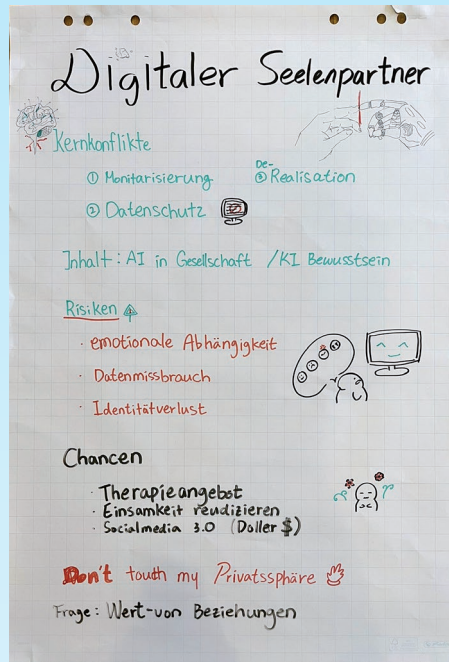 Digitaler Seelenpartner
Kernkonflikte
① Monitarisierung
De-
③ Realisation
② Datenschutz
Inhalt: AI in Gesellschaft / KI Bewusstsein
Risiken
· emotionale Abhängigkeit
· Datenmissbrauch
· Identitätverlust
Chancen
· Therapieangebot
· Einsamkeit reudizieren
· Socialmedia 3.0 (Doller $)
Don't touth my Privatssphäre
Frage: Wert von Beziehungen